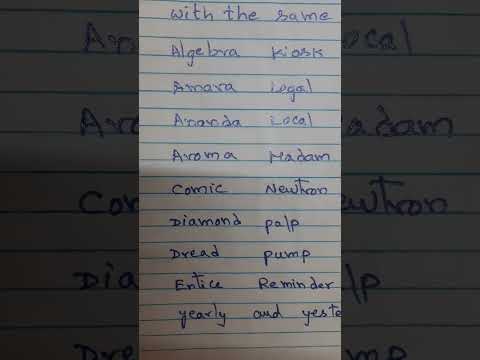 with the same
Algebra Kiosk
Amara Legal
Ananda Local
Aroma Madam
Comic Newtron
Diamond palp
Dread pump
Entice Reminder
yearly and yeste